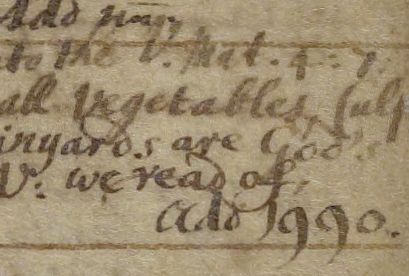 Add
to the V. Mat. 4:
all Vegetables,
inyards are God's
V: we read of,
Add 1990.